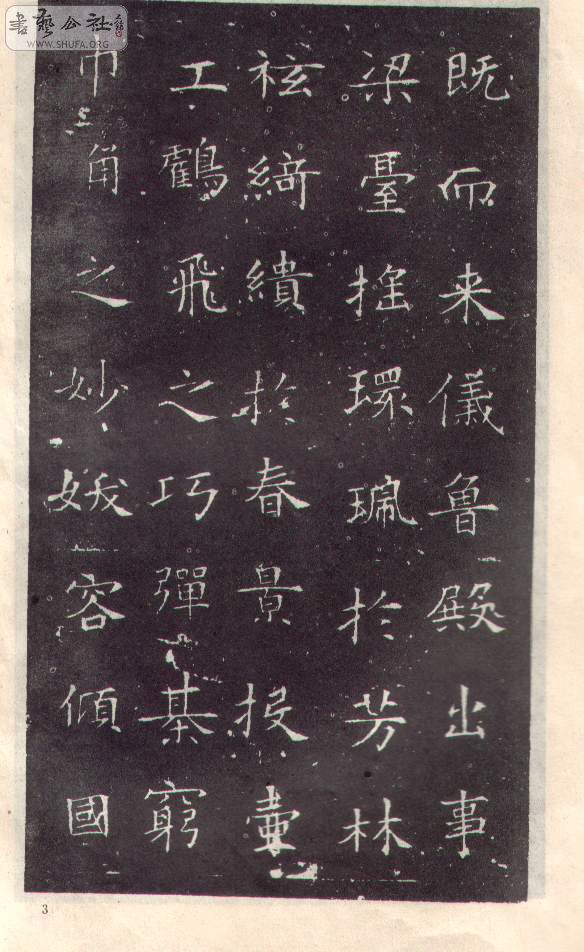 既而来儀魯殿出事
梁臺搖環珮於芳林
袨綺繢於春景投壷
工鶴飛之巧彈棊窮
巾角之妙妙
娥容傾國
3
書藝公社
WWW.SHUFA.ORG